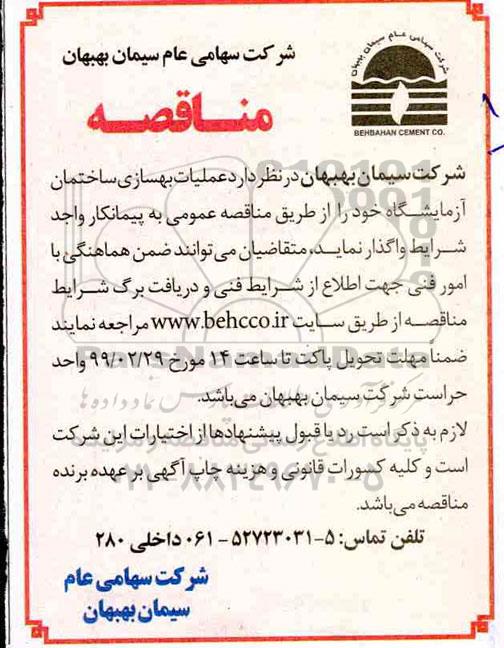 شرکت سهامی عام سیمان بهبهان
شرکت سهامی عام سیمان بهبهان
BEHBAHAN CEMENT CO.
مناقصه
شرکت سیمان بهبهان در نظر دارد عملیات بهسازی ساختمان
آزمایشگاه خود را از طریق مناقصه عمومی به پیمانکار واجد
شرایط واگذار نماید، متقاضیان می توانند ضمن هماهنگی با
امور فنی جهت اطلاع از شرایط فنی و دریافت برگ شرایط
مناقصه از طریق سایت www.behcco.ir مراجعه نمایند
ضمناً مهلت تحویل پاکت تا ساعت ۱۴ مورخ ۹۹/۰۲/۲۹ واحد
حراست شرکت سیمان بهبهان می باشد.
لازم به ذکر است رد یا قبول پیشنهادها از اختیارات این شرکت
است و کلیه کسورات قانونی و هزینه چاپ آگهی بر عهده برنده
مناقصه می باشد.
تلفن تماس: ۵-۵۲۷۲۳۰۳۱ - ۰۶۱ داخلی ۲۸۰
شرکت سهامی عام
سیمان بهبهان
ParsNamadData
۰۲۱-۸۸۳۴۹۶۷۰-۵